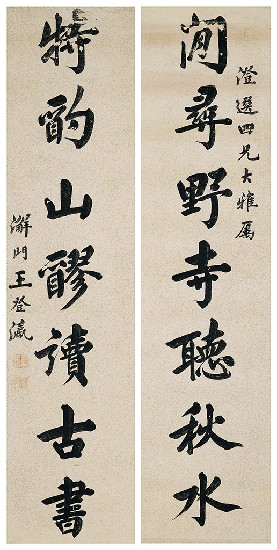 澄選四兄大雅屬
閒尋野寺聽秋水
特酌山醪讀古書
澥門王登瀛